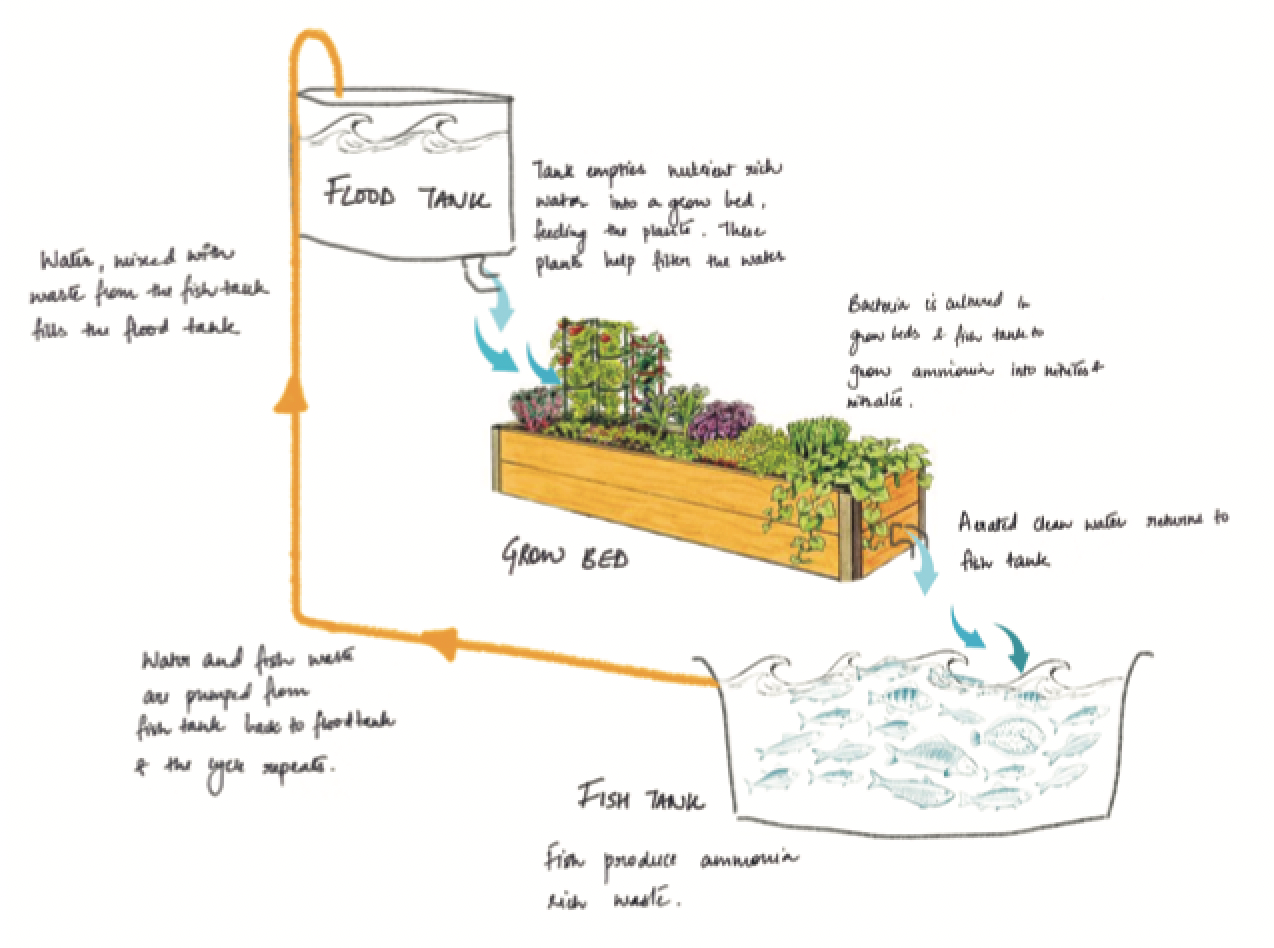 FLOOD TANK
Tank empties nutrient rich
water into a grow bed,
feeding the plants. These
plants help filter the water
Water, mixed with
waste from the fish tank
fills the flood tank
Bacteria is cultured in
grow beds & fish tank to
grow ammonia into nitrites &
nitrates.
GROW BED
Aerated clean water returns to
fish tank
Water and fish waste
are pumped from
fish tank back to flood tank
& the cycle repeats.
FISH TANK
Fish produce ammonia
rich waste.